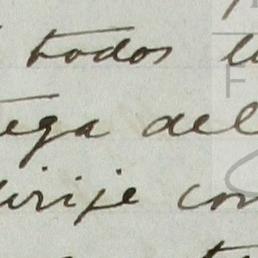 todos
ega del
irije con